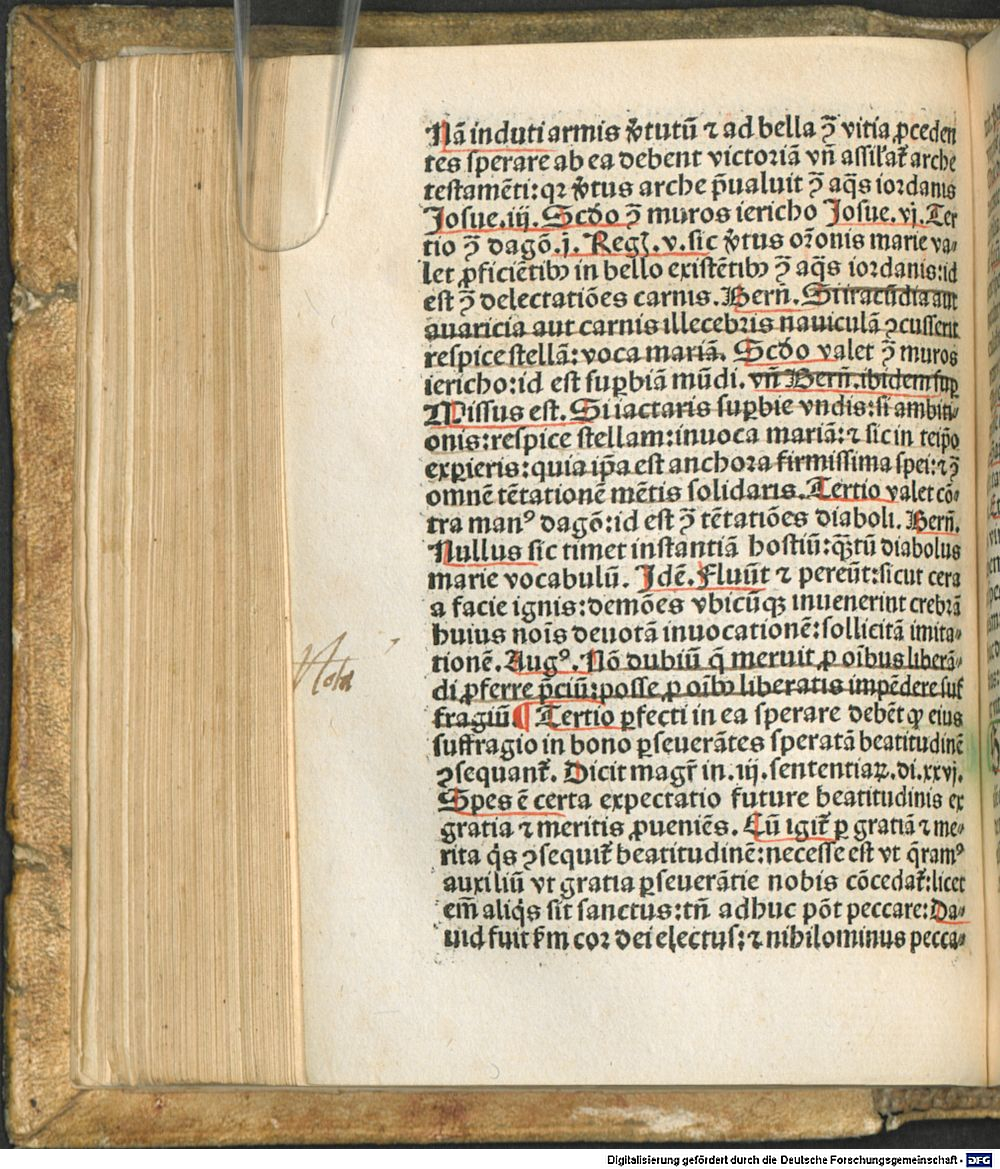 Nā induti armis v̄tutū ⁊ ad bella ꝯ̄ vitia ꝓceden
tes sperare ab ea debent victoriā vn̄ assil'at᷑ arche
testamēti: qꝛ v̄tus arche p̄ualuit ꝯ̄ aq̄s iordanis
Josue.iij. Scd̄o ꝯ̄ muros iericho Josue.vj. Ter
tio ꝯ̄ dagō.j. Regꝭ.v. sic v̄tus or̄onis marie va⸗
let ꝓficiētibꝫ in bello existētibꝫ ꝯ̄ aq̄s iordanis: id
est ꝯ̄ delectatiōes carnis. Bern̄. Si iracūdia aut
auaricia aut carnis illecebris nauiculā ꝯcusserit
respice stellā: voca mariā. Scd̄o valet ꝯ̄ muros
iericho: id est suꝑbiā mūdi. vn̄ Bern̄. ibidem suꝑ
Missus est. Si iactaris suꝑbie vndis: si ambiti⸗
onis: respice stellam: inuoca mariā: ⁊ sic in teip̄o
exꝑieris: quia ip̄a est anchora firmissima spei: ⁊ ꝯ̄
omnē tētationē mētis solidaris. Tertio valet cō⸗
tra manꝰ dagō: id est ꝯ̄ tētatiōes diaboli. Bern̄.
Nullus sic timet instantiā hostiū: qꝫ̄tū diabolus
marie vocabulū. Idē. Fluūt ⁊ pereūt: sicut cera
a facie ignis: demōes vbicūqꝫ inuenerint crebrā
huius noīs deuotā inuocationē: sollicitā imita⸗
tionē. Augꝰ. Nō dubiū q̄ meruit ꝓ oībus liberā⸗
di ꝓferre p̄ciū: posse ꝓ oībꝫ liberatis impēdere suf
fragiū. ¶ Tertio ꝑfecti in ea sperare debēt ꝙ eius
suffragio in bono ꝑseuerātes speratā beatitudinē
ꝯsequant᷑. Dicit magr̄ in.iij. sententiaꝝ.di.xxvj.
Spes ē certa expectatio future beatitudinis ex
gratia ⁊ meritis ꝓueniēs. Cū igit᷑ ꝑ gratiā ⁊ me⸗
rita q̇s ꝯsequit᷑ beatitudinē: necesse est vt q̄ramꝰ
auxiliū vt gratia ꝑseuerātie nobis cōcedat᷑: licet
em̄ aliq̇s sit sanctus: tn̄ adhuc pōt peccare: Da⸗
uid fuit ẜm cor dei electus: ⁊ nihilominus pecca⸗
Nota
Digitalisierung gefördert durch die Deutsche Forschungsgemeinschaft - DFG